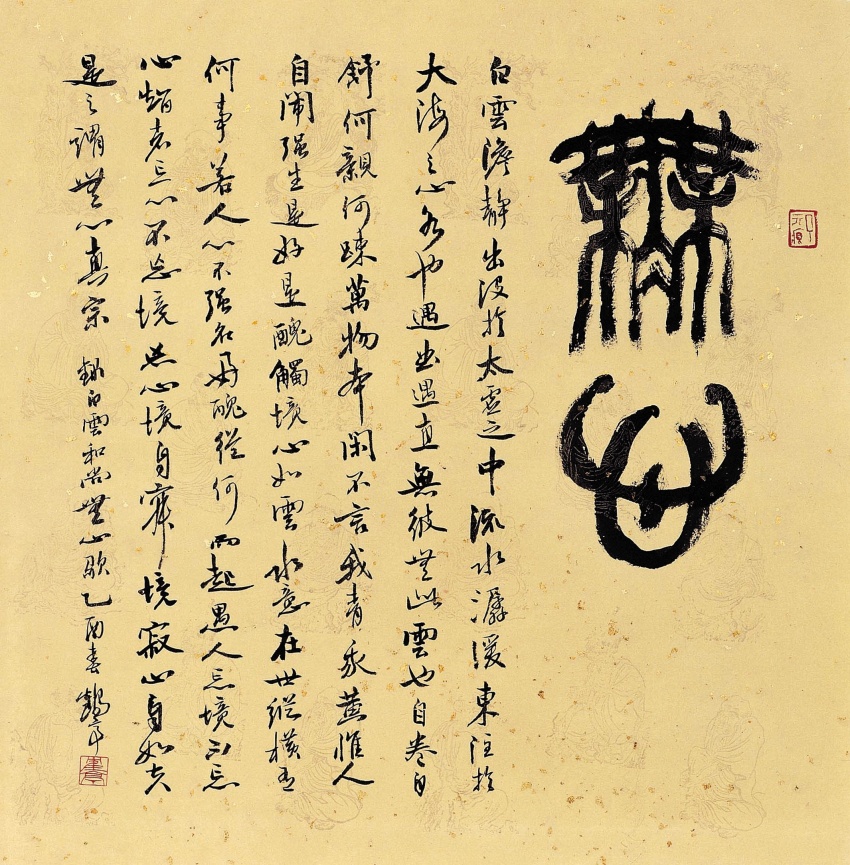 無心
白雲澹靜出沒於太虛之中流水潺湲東注於
大海之心水也遇曲遇直無彼無此雲也自卷自
舒何親何疎萬物本閑不言我青我黃惟人
自鬧强生是好是醜觸境心如雲水意在世縱橫有
何事若人心不强名好醜從何而起愚人忘境不忘
心智者忘心不忘境忘心境自寂境寂心自如夫
是之謂無心真宗 錄白雲和尚無心歌乙酉春鶴年